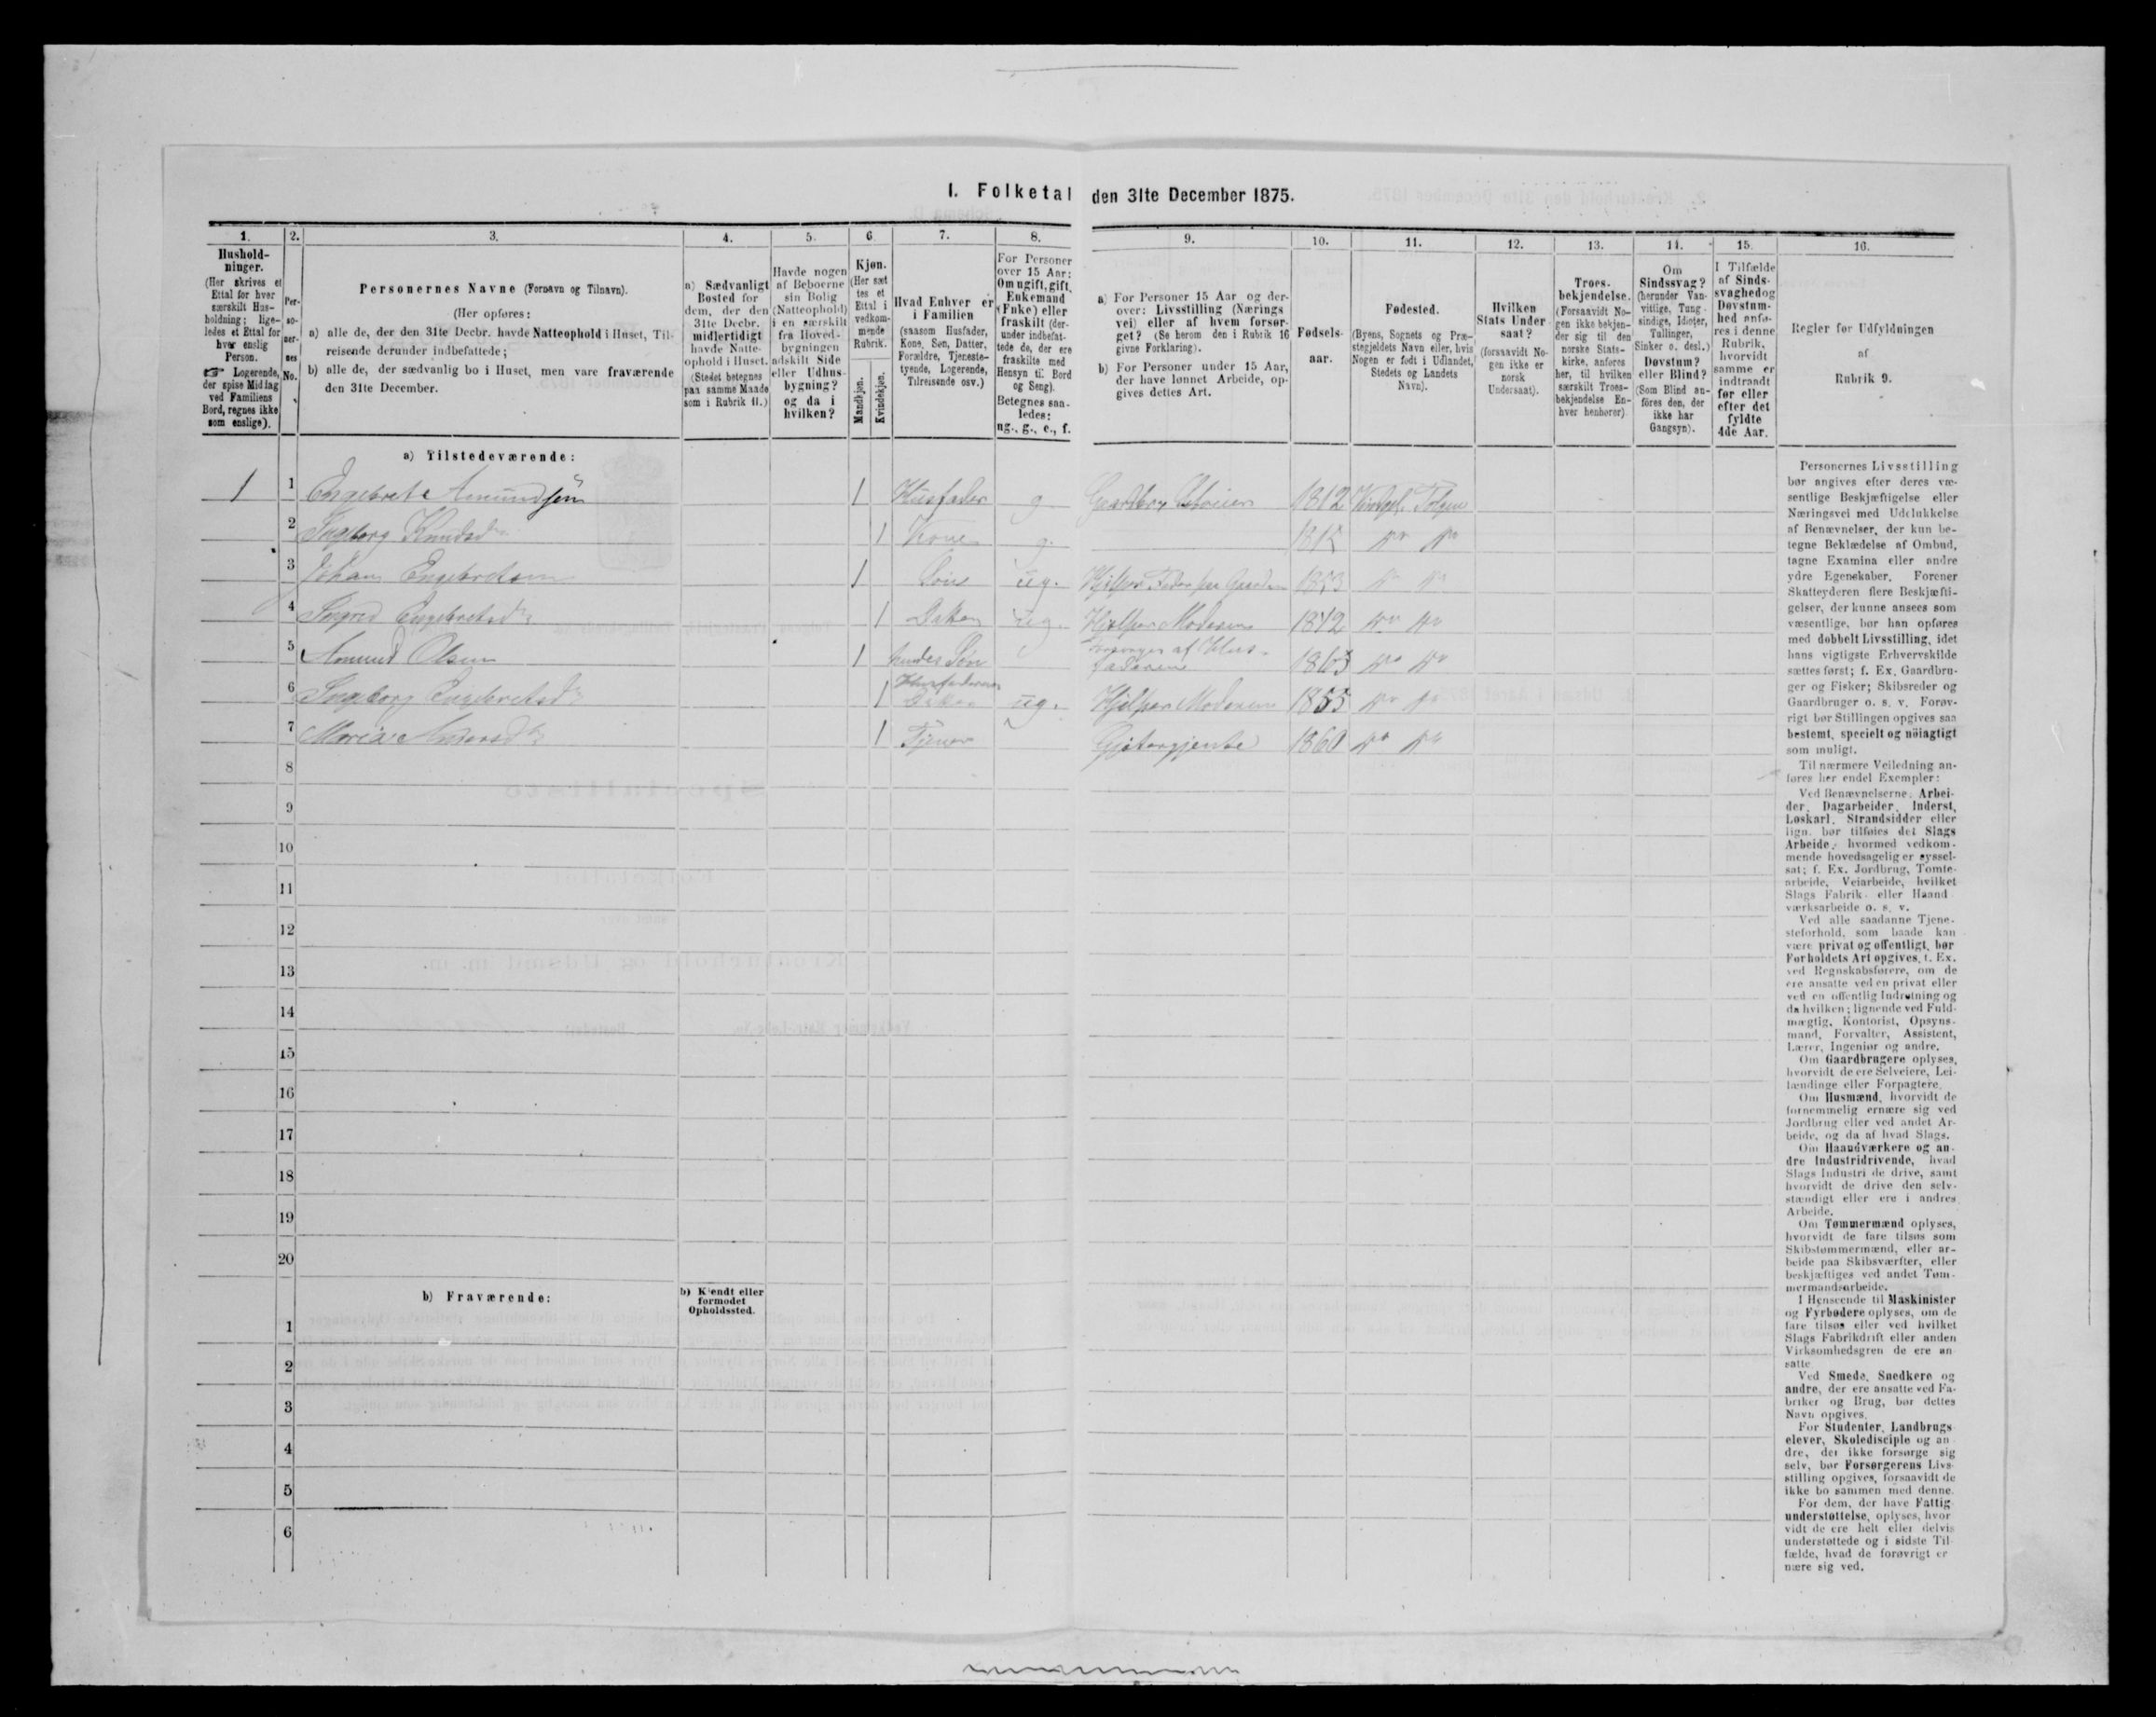 I. Folketal den 31te December 1875.
1. 2. 3. 4. 5. 6. 7. 8. 9. 10. 11. 12. 13. 14. 15. 16.
Hushold-
ninger.
(Her skrives et
Ettal for hver
særskilt Hus-
holdning; lige-
ledes et Ettal for
hver enslig
Person.
☞ Logerende,
der spise Middag
ved Familiens
Bord, regnes ikke
som enslige).
Per-
so-
ner-
nes
No.
Personernes Navne (Fornavn og Tilnavn).
(Her opføres:
a) alle de, der den 31te Decbr. havde Natteophold i Huset, Til-
reisende derunder indbefattede;
b) alle de, der sædvanlig bo i Huset, men vare fraværende
den 31te December.
a) Sædvanligt
Bosted for
dem, der den
31te Decbr.
midlertidigt
havde Natte-
ophold i Huset.
(Stedet betegnes
paa samme Maade
som i Rubrik 11.)
Havde nogen
af Beboerne
sin Bolig
(Natteophold)
i en særskilt
fra Hoved-
bygningen
adskilt Side
eller Udhus-
bygning?
og da i
hvilken?
Kjøn.
(Her sæt
tes et
Ettal i
vedkom-
mende
Rubrik.
Mandkjøn.
Kvindekjøn.
Hvad Enhver er
i Familien
(saasom Husfader,
Kone, Søn, Datter,
Forældre, Tjeneste-
tyende, Logerende,
Tilreisende osv.)
For Personer
over 15 Aar:
Om ugift, gift,
Enkemand
(Enke) eller
fraskilt (der-
under indbefat-
tede de, der ere
fraskilte med
Hensyn til Bord
og Seng).
Betegnes saa-
ledes:
ug., g., e., f.
a) For Personer 15 Aar og der-
over: Livsstilling (Nærings
vei) eller af hvem forsør-
get? (Se herom den i Rubrik 16
givne Forklaring).
b) For Personer under 15 Aar,
der have lønnet Arbeide, op-
gives dettes Art.
Fødsels-
aar.
Fødested.
(Byens, Sognets og Præ-
stegjeldets Navn eller, hvis
Nogen er født i Udlandet,
Stedets og Landets
Navn).
Hvilken
Stats Under
saat?
(forsaavidt No-
gen ikke er
norsk
Undersaat).
Troes-
bekjendelse.
(Forsaavidt No-
gen ikke bekjen-
der sig til den
norske Stats-
kirke, anføres
her, til hvilken
særskilt Troes-
bekjendelse En-
hver henhører)
Om
Sindssvag?
(herunder Van-
vittige, Tung-
sindige, Idioter,
Tullinger,
Sinker o. desl.)
Døvstum?
eller Blind?
(Som Blind an-
føres den, der
ikke har
Gangsyn).
I Tilfælde
af Sinds-
svaghed og
Døvstum-
hed anfø-
res i denne
Rubrik,
hvorvidt
samme er
indtraadt
før eller
efter det
fyldte
4de Aar.
Regler for Udfyldningen
af
Rubrik 9.
a) Tilstedeværende:
1 1 Engebret Amundsøn 1 Husfader g. Gaardbr. Selveier 1812 Tolgen
2 Ingborg Knudsd. 1 Kone g. do do
3 Johan Engebretsen 1 Søn ug. Hjelper Fader paa Gaarden 1853 do do
4 Ingrid Engebretsd. 1 Datter ug. Hjelper Moderen 1842 do do
5 Amund Olsen 1 hendes Søn af Hus-
faderen 1863 do do
6 Ingeborg Engebretsd. 1 Husfaderens
Datter ug. Hjelper Moderen 1855 do do
7 Maria Andersd. 1 Tjener Gjetergjente 1860 do do
8
9
10
11
12
13
14
15
16
17
18
19
20
b) Fraværende:
b) Kjendt eller
formodet
Opholdssted.
1
2
3
4
5
6
Personernes Livsstilling
bør angives efter deres væ-
sentlige Beskjæftigelse eller
Næringsvei med Udelukkelse
af Benævnelser, der kun be-
tegne Beklædelse af Ombud,
tagne Examina eller andre
ydre Egenskaber. Forener
Skatteyderen flere Beskjæfti-
gelser, der kunne ansees som
væsentlige, bør han opføres
med dobbelt Livsstilling, idet
hans vigtigste Erhvervskilde
sættes først; f. Ex. Gaardbru-
ger og Fisker; Skibsreder og
Gaardbruger o. s. v. Forøv-
rigt bør Stillingen opgives saa
bestemt, specielt og nøiagtigt
som muligt.
Til nærmere Veiledning an-
føres her endel Exempler:
Ved Benævnelserne: Arbei-
der, Dagarbeider, Inderst,
Løskarl, Strandsidder eller
lign. bør tilføies det Slags
Arbeide, hvormed vedkom-
mende hovedsagelig er syssel-
sat; f. Ex. Jordbrug, Tomte-
arbeide, Veiarbeide, hvilket
Slags Fabrik- eller Haand
værksarbeide o. s. v.
Ved alle saadanne Tjene-
steforhold, som baade kan
være privat og offentligt, bør
Forholdets Art opgives, f. Ex.
ved Regnskabsførere, om de
ere ansatte ved en privat eller
ved en offentlig Indretning og
da hvilken; lignende ved Fuld-
mægtig, Kontorist, Opsyns-
mand, Forvalter, Assistent,
Lærer, Ingeniør og andre.
Om Gaardbrugere oplyses,
hvorvidt de ere Selveiere, Lei-
lændinge eller Forpagtere.
Om Husmænd, hvorvidt de
fornemmelig ernære sig ved
Jordbrug eller ved andet Ar-
beide, og da af hvad Slags.
Om Haandværkere og an-
dre Industridrivende, hvad
Slags Industri de drive, samt
hvorvidt de drive den selv-
stændigt eller ere i andres
Arbeide.
Om Tømmermænd oplyses,
hvorvidt de fare tilsøs som
Skibstømmermænd, eller ar-
beide paa Skibsværfter, eller
beskjæftiges ved andet Tøm-
mermandsarbeide.
I Henseende til Maskinister
og Fyrbødere oplyses, om de
fare tilsøs eller ved hvilket
Slags Fabrikdrift eller anden
Virksomhedsgren de ere an
satte
Ved Smede, Snedkere og
andre, der ere ansatte ved Fa-
briker og Brug, bør dettes
Navn opgives.
For Studenter, Landbrugs
elever, Skoledisciple og an
dre, der ikke forsørge sig
selv, bør Forsørgerens Livs-
stilling opgives, forsaavidt de
ikke bo sammen med denne.
For dem, der have Fattig
understøttelse, oplyses, hvor
vidt de ere helt eller delvis
understøttede og i sidste Til
fælde, hvad de forøvrigt er
nære sig ved.